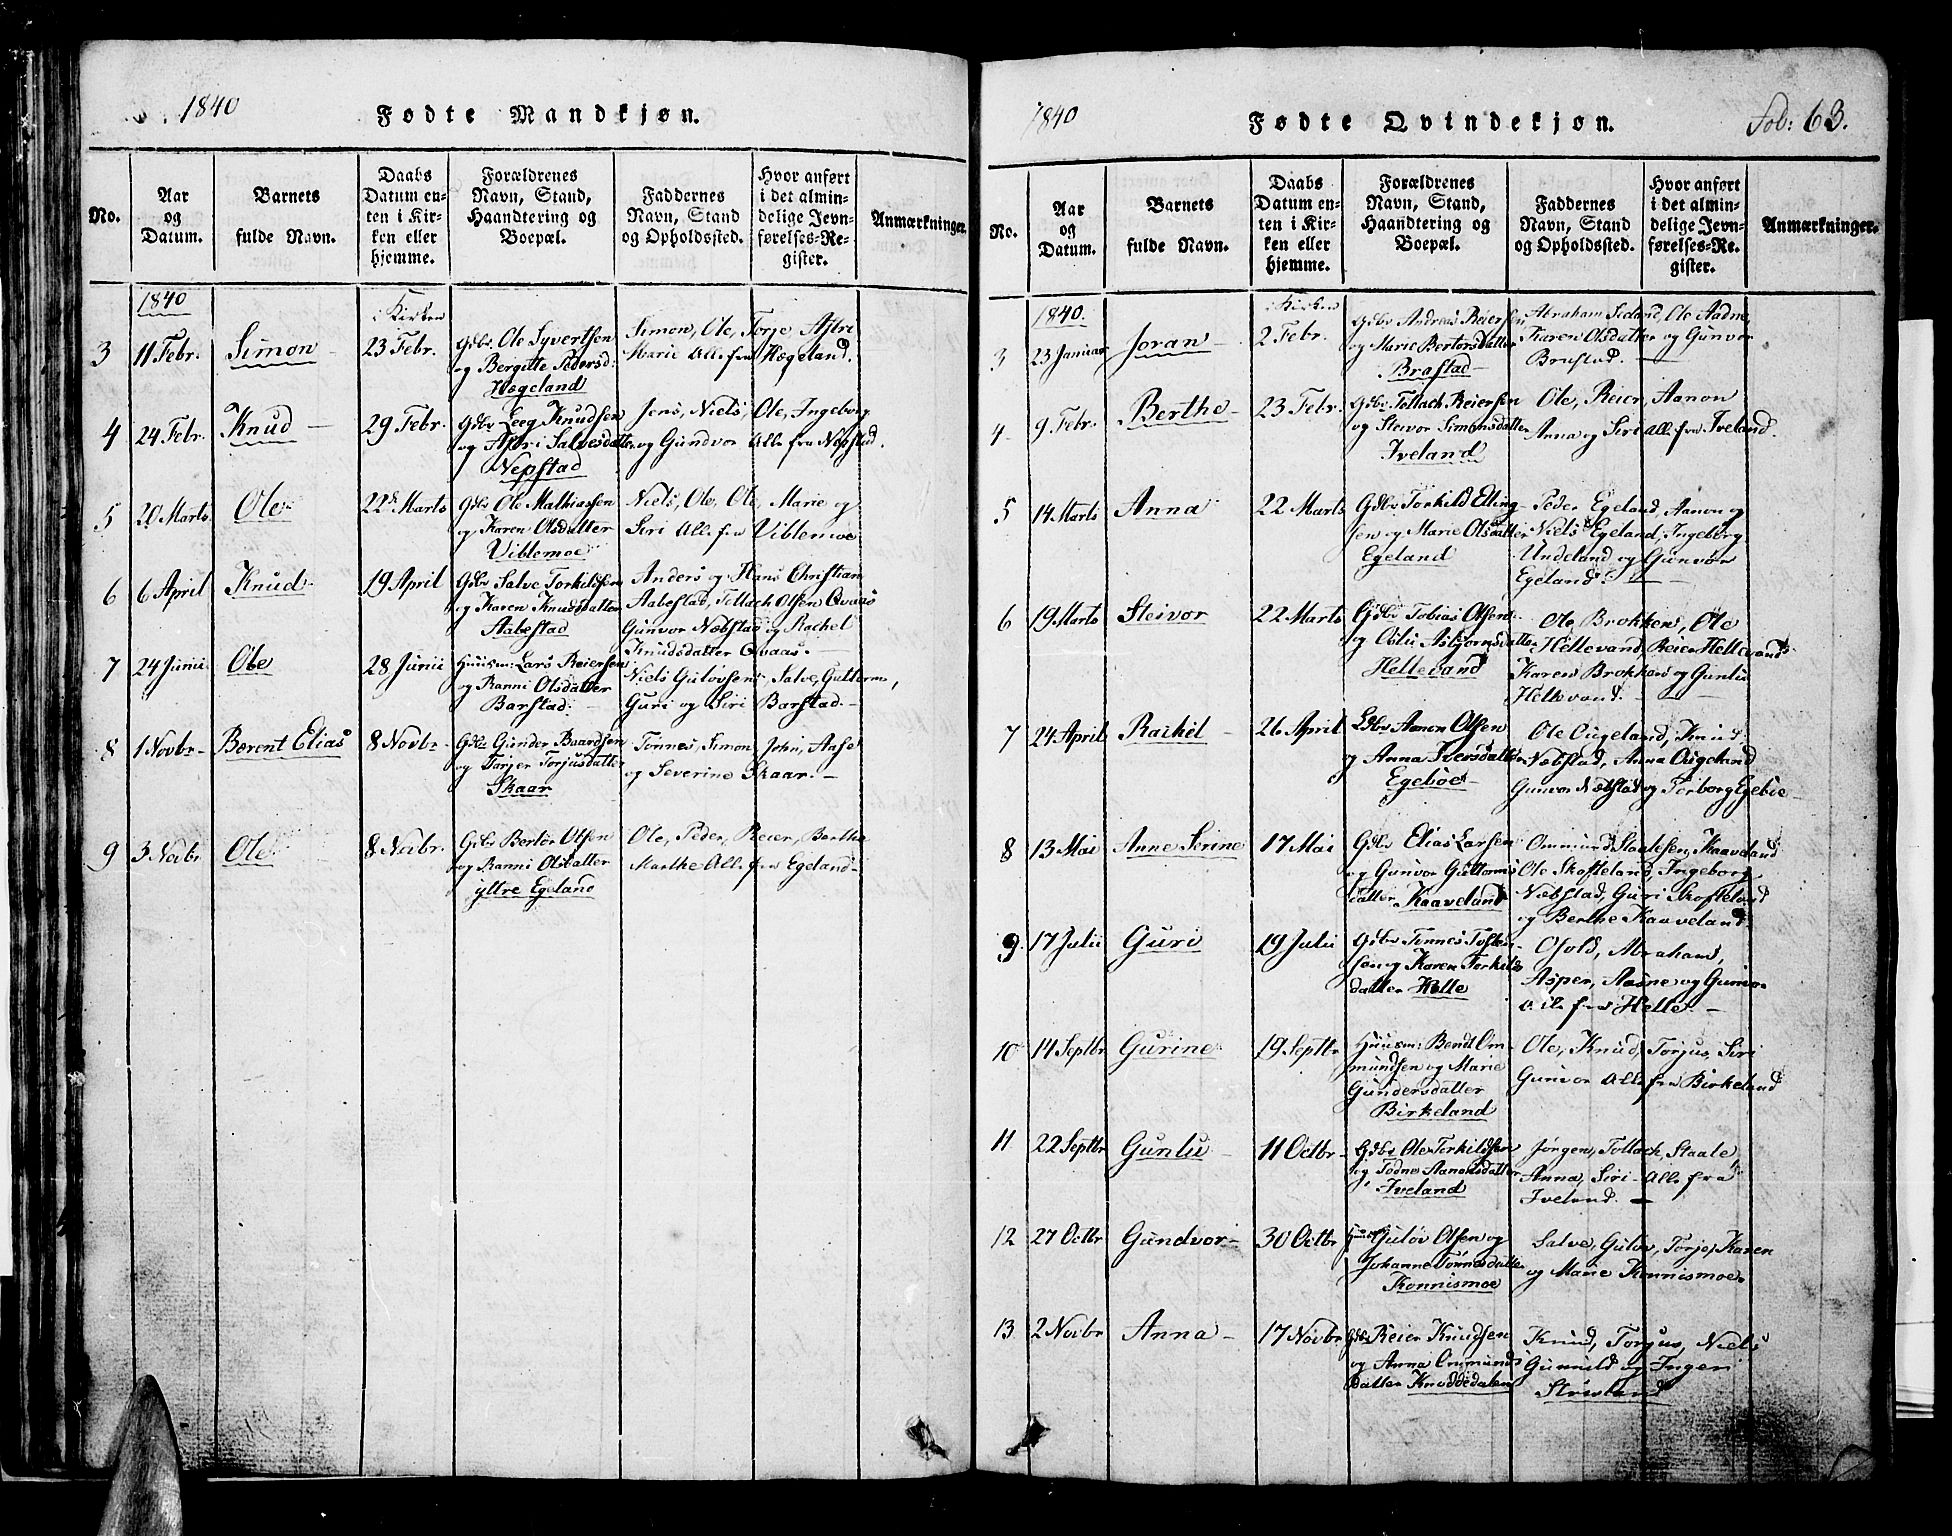 1840
Fødte Mandkjøn.
No.
Aar og Datum.
Barnets fulde Navn.
Daabs Datum enten i Kirken eller hjemme.
Forældrenes Navn, Stand, Haandtering og Boepæl.
Faddernes Navn, Stand og Opholdssted.
Hvor anført i det almindelige Jevnførelses-Register.
Anmærkninger.
1840
i Kirken
3 11 Febr. Simon 23 Febr. Gdbr. Ole Syvertsen
og Bergitte Pedersd:
Hægeland
Simon, Ole, Torje, Astri
Marie Alle fra Hægeland.
4 24 Febr. Knud 29 Febr. Gdbr Leeg Knudsen
og Astri Salvesdatter
Nepstad
Jens, Niels, Ole, Ingeborg
og Gundvor Alle fra Nepstad.
5 20 Marts Ole 22de Marts Gdbr Ole Mathiassen
og Karen Olsdatter
Viblemoe
Niels, Ole, Ole, Marie og
Siri Alle fra Viblemoe
6 6 April Knud 19 April Gdbr Salve Torkildsen
og Karen Knudsdatter
Aabestad
Anders og Hans Christian
Aabestad, Tollach Olsen Qvaas
Gunvor Næbstad og Rachel
Knudsdatter Qvaas.
7 24 Junii Ole 28 Junii Huusm: Lars Reiersen
og Ranni Olsdatter
Barstad.
Niels Guløvsen, Salve, Guttorm,
Guri og Siri Barstad.
8 1 Novbr Berent Elias 8 Novbr Gdbr Gunder Baardsen
og Tarjer Torjusdatter
Skaar
Tønnes, Simon, John, Aase
og Severine Skaar.
9 3 Novbr Ole 8 Novbr. Gdbr Bertor Olsen
og Ranni Olsdatter
yttre Egeland
Ole, Peder, Reier, Berthe
Marthe Alle fra Egeland
1840
Fødte Qvindekjøn.
Fol: 63.
No.
Aar og Datum.
Barnets fulde Navn.
Daabs Datum enten i Kirken eller hjemme.
Forældrenes Navn, Stand, Haandtering og Boepæl.
Faddernes Navn, Stand og Opholdssted.
Hvor anført i det almindelige Jevnførelses-Register.
Anmærkninger.
1840.
i Kirken
3 23 Januar Joran 2 Febr. Gdbr Andreas Reiersen
og Marie Bertorsdatter
Brastad
Abraham Sodland, Ole Aadne,
Karen Olsdatter og Gunvor
Brastad.
4 9 Febr. Berthe 23 Febr. Gdbr Tollach Reiersen
og Steivor Simonsdatter
Iveland
Ole, Reier, Aanon
Anna og Siri Alle fra Iveland.
5 14 Marts Anna 22 Marts Gdbr Torkild Elling-
sen og Marie Olsdatter
Egeland
Peder Egeland, Aanon og
Niels Egeland, Ingeborg
Undeland og Gunvor
Egeland.
6 19 Marts Steivor 22 Marts Gdbr Tobias Olsen
og Obilu Asbjørnsdatter
Hellevand
Ole Brokken, Ole
Hellevand, Reier Hellevand
Karen Brokken og Gunlu
Hellevand.
7 24 April Rachel 26 April Ldbr Aanon Olsen
og Anna Iversdatter
Egebøe
Ole Ougeland, Knud
Næbstad, Anna Ougeland
Gunvor Næbstad og Torborg Egebøe
8 13 Mai Anne Serine 17 Mai Gdbr Elias Larsen
og Gunvor Guttorms
datter Kaaveland
Ommund Staalesen, Kaaveland
Ole Skofteland, Ingeborg
Næbstad, Guri Skofteland
og Berthe Kaaveland.
9. 17 Julii Guri 19 Julii Gdbr Tønnes Tosten-
sen og Karen Torkilds
datter Helle
Osold, Abraham,
Asper, Aasne og Gunvor
alle fra Helle.
10 14 Septbr Gurine 19 Septbr Huusm: Bendt Om-
mundsen og Marie
Gundersdatter
Birkeland
Ole, Knud, Torjus, Siri
Gunvor Alle fra Birkeland
11 22 Septbr Gunlu 11 Octbr Gdbr Ole Torkildsen
og Todne Aanonsdatter
Iveland
Jørgen, Tollach, Staale
Anna, Siri Alle fra
Iveland.
12 27 Octbr Gundvor 30 Octbr Huusm Guløv Olsen og
Johanne Tønnesdatter
Konnismoe
Salve, Guløv, Torje, Karen
og Marie Konnismoe.
13 2 Novbr Anna 17 Novbr Gdbr Reier Knudsen
og Anna Ommunds
datter Knoddedalen
Knud, Torjus, Niels
Gunild og Ingeri
Støveland